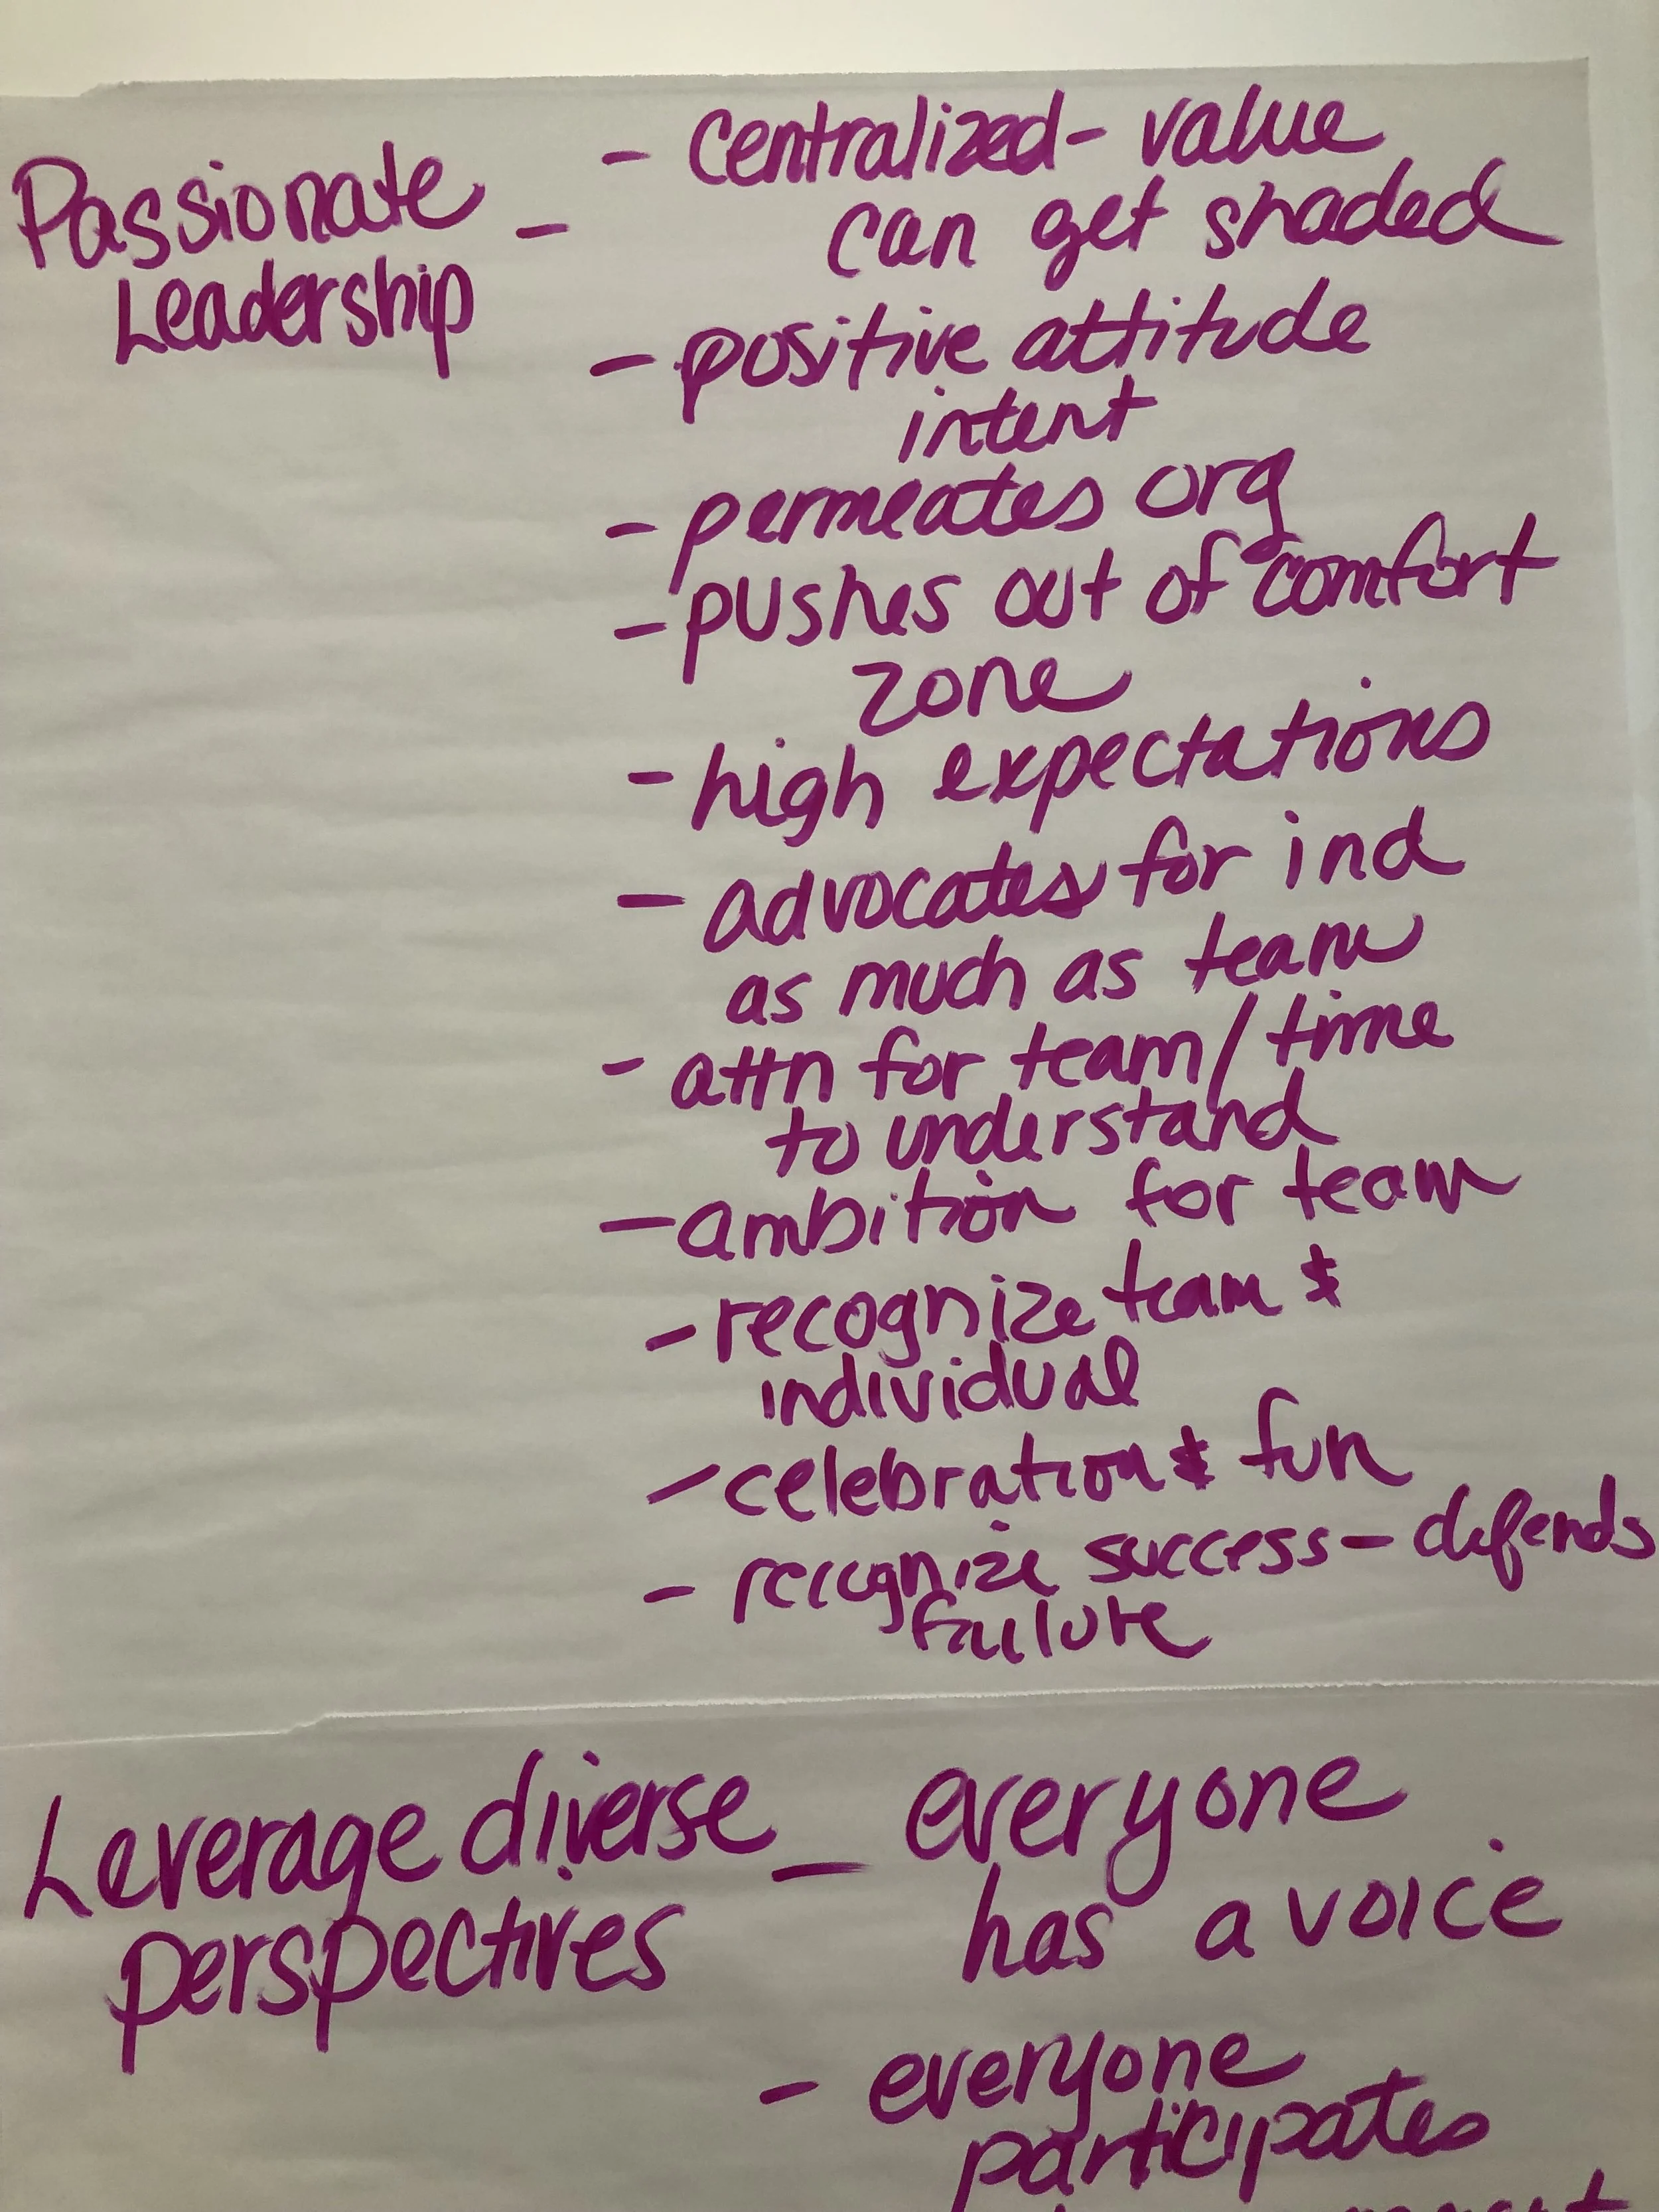 Passionate - - Centralized - value
Leadership can get shaded
- positive attitude
intent
- permeates org
- pushes out of comfort
zone
- high expectations
- advocates for ind
as much as team
- attn for team/time
to understand
- ambition for team
- recognize team &
individual
- celebration & fun
- recognize success - defends
failure
Leverage diverse - everyone
perspectives has a voice
- everyone
participates